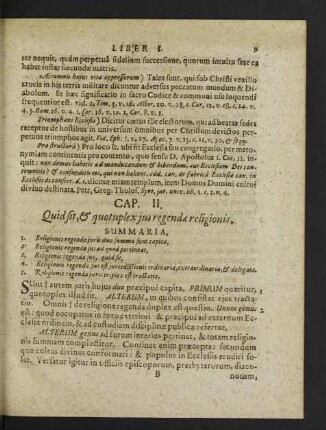 LIBER I. 9
ter nequit, quàm perpetuâ fidelium successione, quorum intuitu fere ea
habet instar fœcundæ matris.
(Ærumnis hujus vitæ oppressorum) Tales sunt, qui sub Christi vexillo
crucis in his terris militare dicuntur adversus peccatum mundum & Di-
abolum. Et hæc significatio in sacro Codice & communi usu loquendi
frequentior est. vid. 1. Tim. 3. v. 16. Actor. 20. v. 28. 1. Cor. 12. v. 28. 1. 14. v.
4. Rom. 16. v. 4. 1. Cor. 16. v. 1. Cor. 8. v. 1.
Triumphantis Ecclesia) Dicitur cœtus ille electorum, qui ad beatas sedes
receptus de hostibus in universum omnibus per Christum devictis per-
petuos triumphos agit. Vid. Eph. 1. v. 10.
Pro structurâ) Pro loco sc. ubi fit Ecclesia seu congregatio, per me-
tonymiam continentis pro contento, quo sensu D. Apostolus 1. Cor. 11.
inquit: num domus habetis ad manducandum & bibendum, aut Ecclesiam Dei con-
temnitis? & confunditis eos, qui non habent. add. can. de fabricâ Ecclesia can. in
Ecclesiis de consecr. d. 1. dicitur etiam templum, item Domus Domini cultui
divino destinata. Petr. Greg. Tholos. Synt. jur. univ. lib. 2. c. 1. n. 4.
CAP. II.
Quid sit, & quotuplex jus regendæ religionis.
SUMMARIA.
1. Religionis regendæ juris duo summa sunt capita.
2. Religionis regendæ jus ad quid pertineat.
3. Religionis regendæ jus, quid sit,
4. Religionis regendæ jus est jurisdictionis ordinariæ, extraordinariæ, & delegatæ.
5. Religionis regendæ juris triplex est tractatio.
Sunt autem juris hujus duo præcipui capita, PRIMUM quæritur,
quotuplex illud sit. ALTERUM, in quibus consistat ejus tracta-
tio. Omnis religione regenda duplex est quæstio. Unum genus
est: quod occupatum in foro exteriori & præcipuè ad externum Ec-
clesiæ ordinem, & ad custodiam disciplinæ publicæ refertur.
ALTERUM genus ad forum interius pertinet, & totam religio-
nis summam complectitur. Continet enim præcepta: secundum
quæ cultus divinus conformari: & populus in Ecclesiis erudiri so-
let. Versatur igitur in officiis episcoporum, presbyterorum, diaco-
B norum,